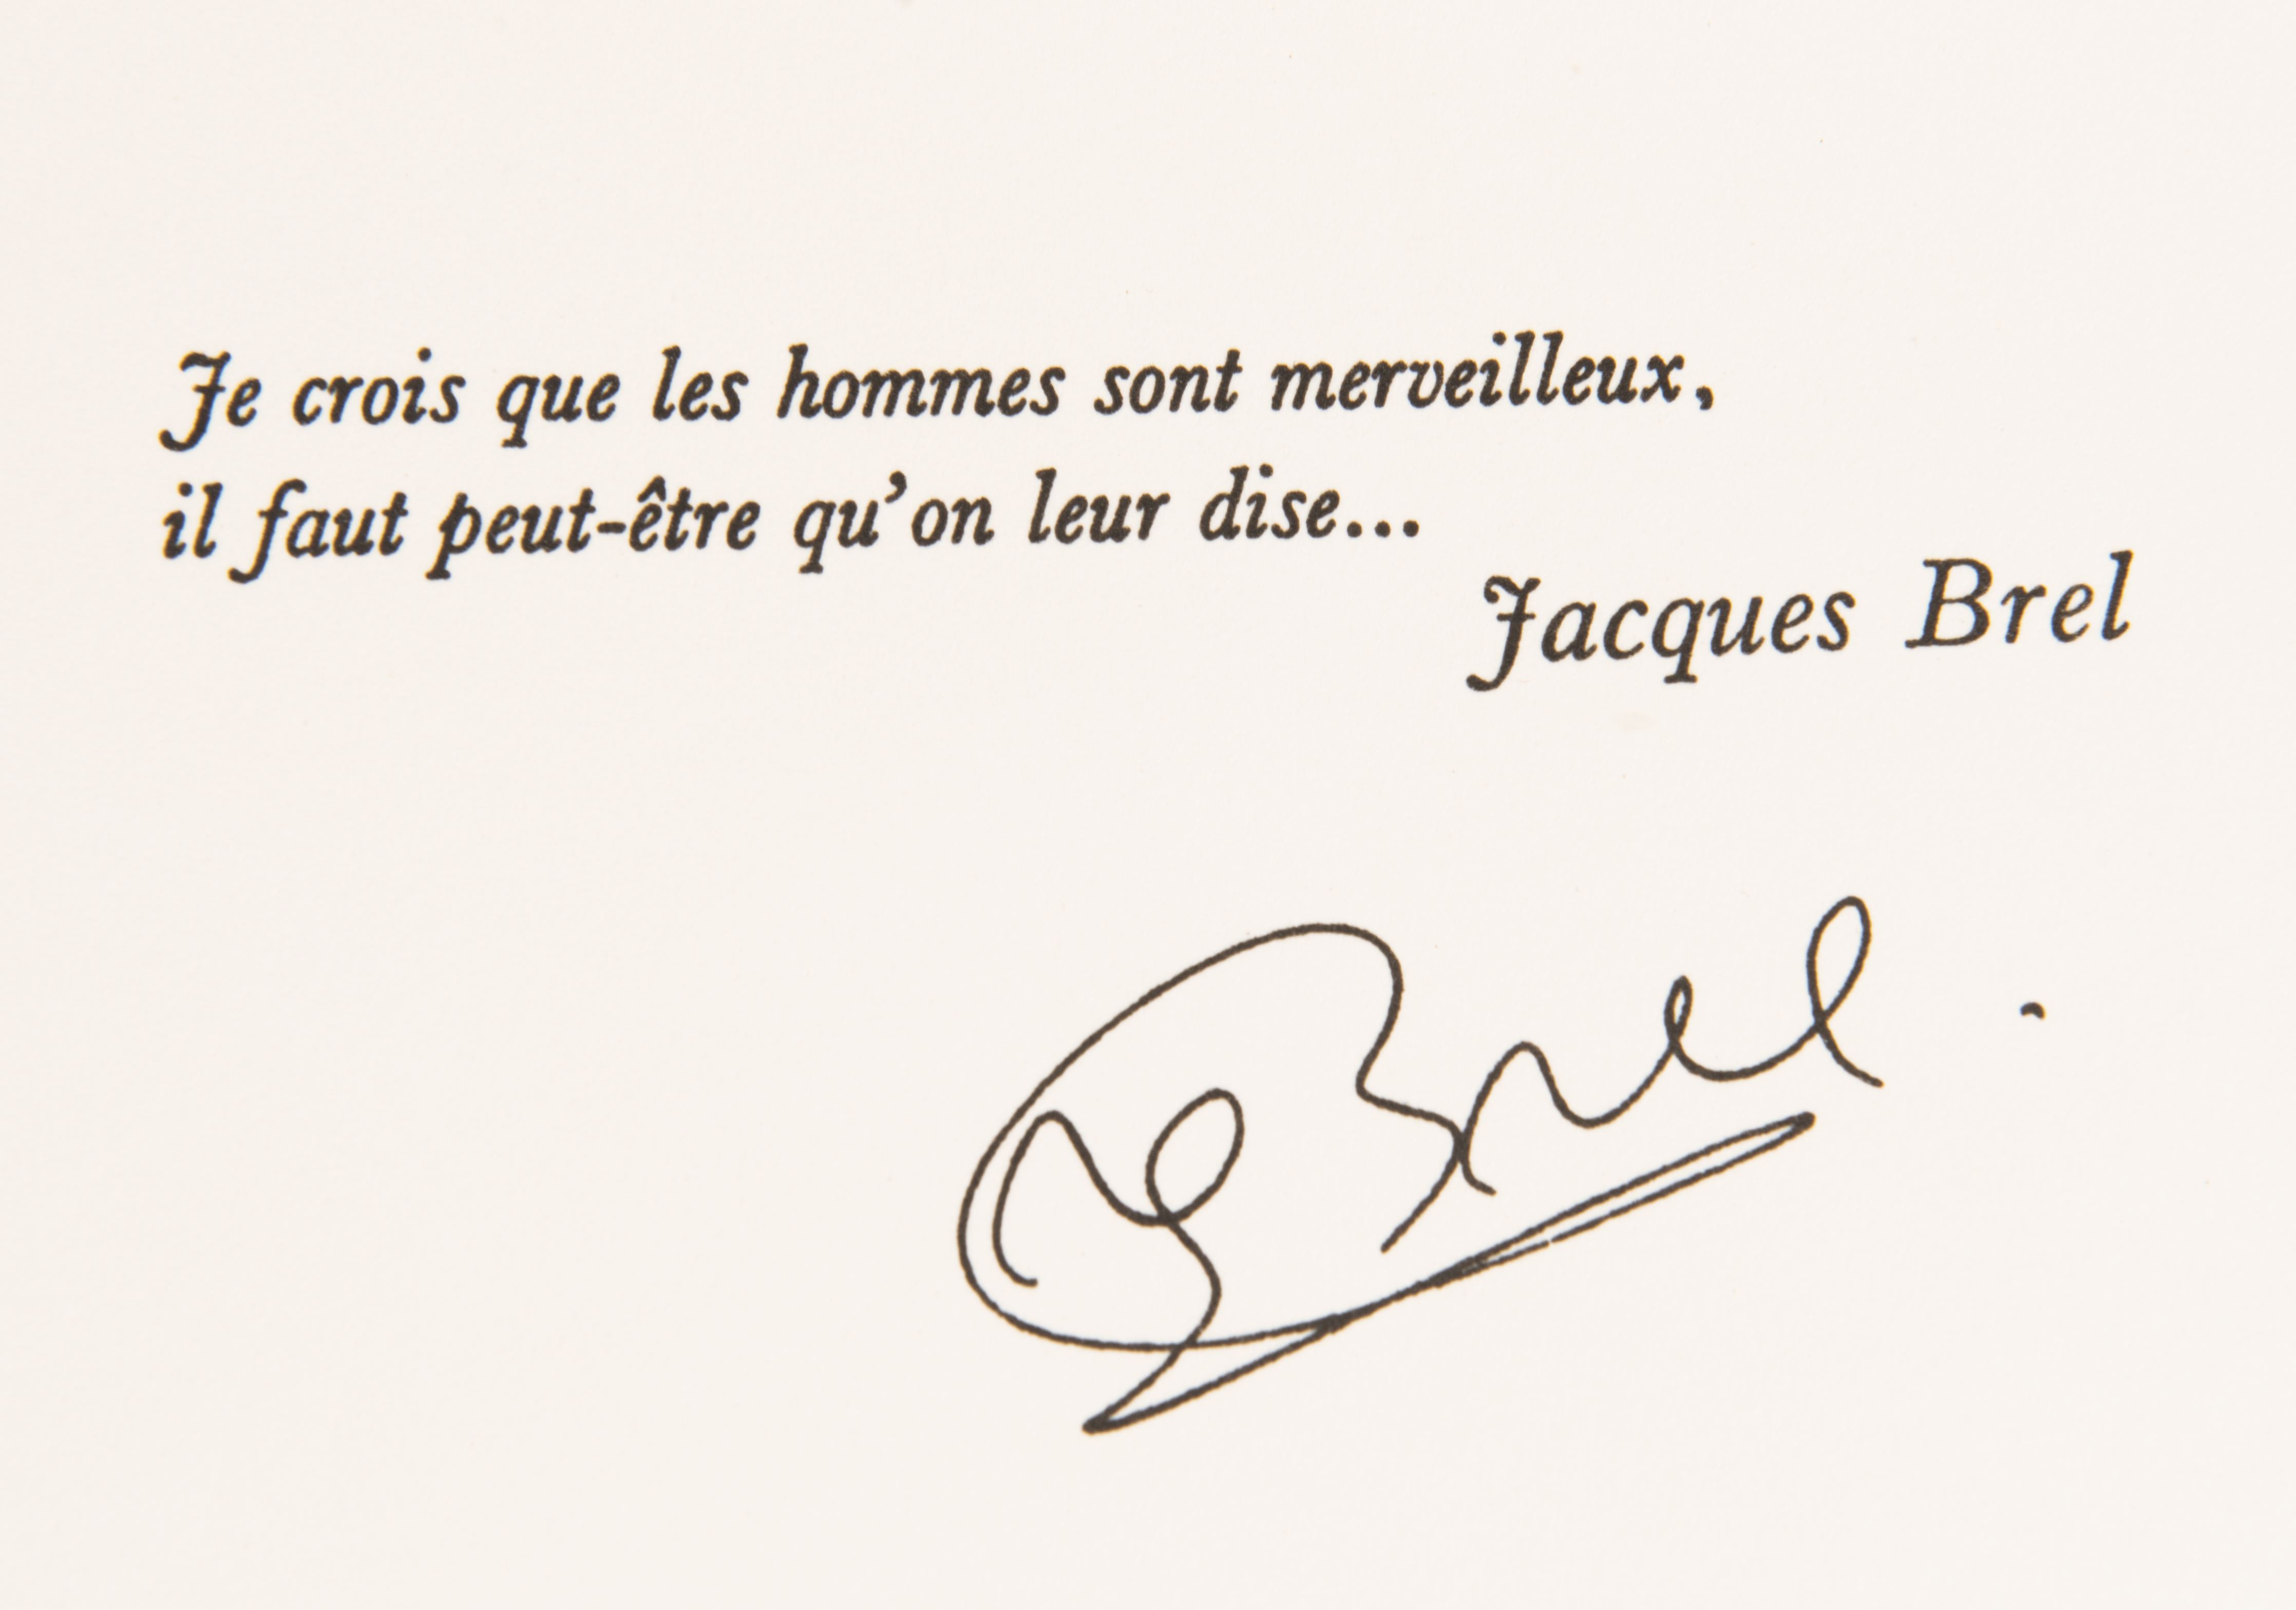 Je crois que les hommes sont merveilleux,
il faut peut-être qu'on leur dise...
Jacques Brel
Brel